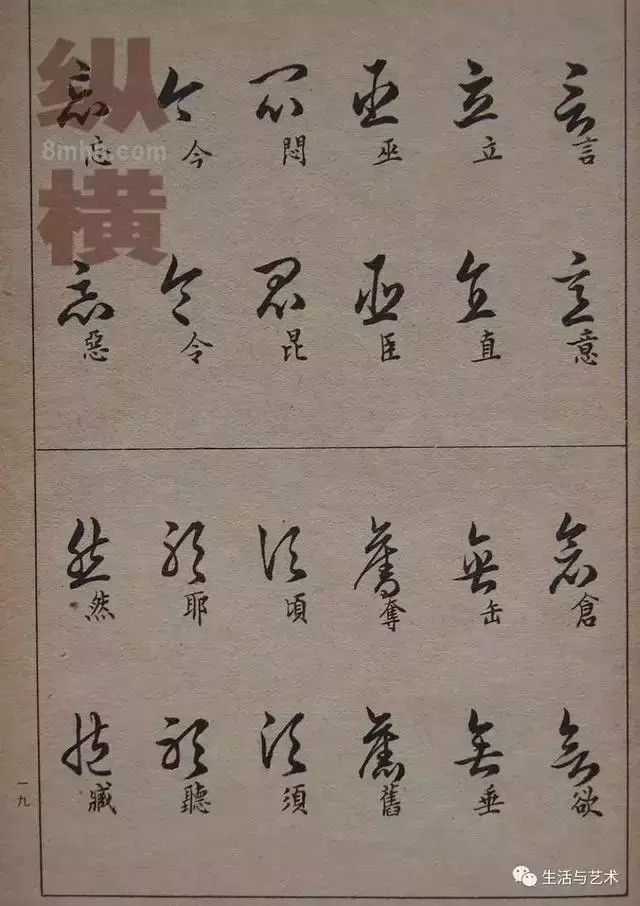 言 立 巫 悶 今 忘
意 直 臣 昆 令 惡
倉 缶 奪 頃 耶 然
欲 垂 舊 須 聽 臧
一九
纵横
8mhh.com
生活与艺术